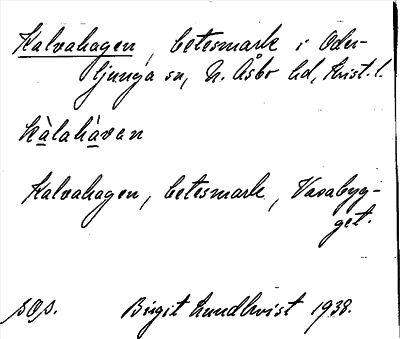 Kalvahagen, betesmark i Oder-
ljunga sn, N. Åsbo hd, Krist. l.
kàlahàvan
Kalvahagen, betesmark, Vasabyg-
get.
sOs. Birgit Lundkvist 1938.